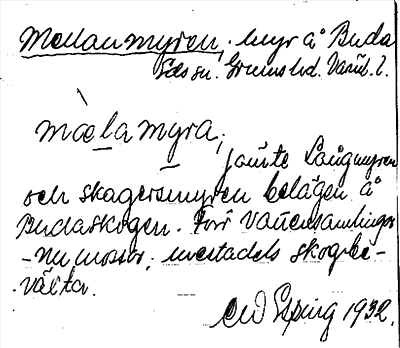 Mellanmyren, myr å Buda
Eds sn. Grums hd. Värml. l.
mælamyra,
jämte Långmyren
och Skagersmyren belägen å
Budaskogen. Förr vattensamlingar
- nu mossar, mestadels skogbe-
växta.
1932.